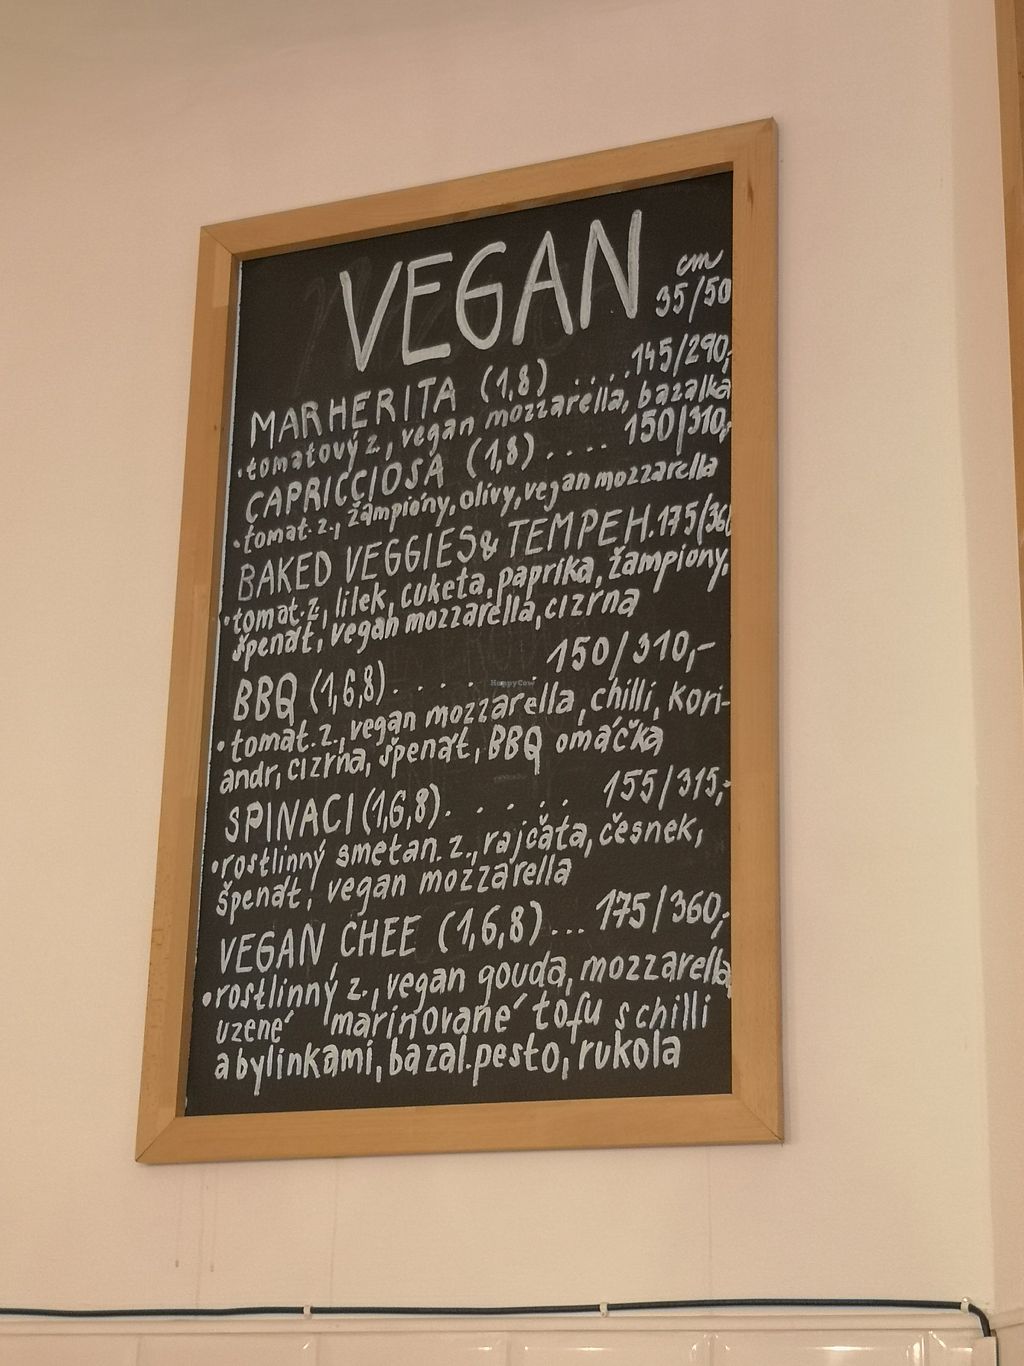 VEGAN
cm
35/50
MARHERITA (1,8) ....145/290,-
•tomatový z., vegan mozzarella, bazalka
CAPRICCIOSA (1,8).... 150/310,-
•tomat. z., žampióny, olivy, vegan mozzarella
BAKED VEGGIES & TEMPEH.175/360
•tomat. z., lilek, cuketa, paprika, žampiony,
špenát, vegan mozzarella, cizrna
BBQ (1,6,8)...... 150/310,-
•tomat. z., vegan mozzarella, chilli, kori-
andr, cizrna, špenát, BBQ omáčka
SPINACI (1,6,8)..... 155/315,-
•rostlinný smetan. z., rajčáta, česnek,
špenát, vegan mozzarella
VEGAN CHEE (1,6,8)... 175/360,-
•rostlinný z., vegan gouda, mozzarella
uzené marinované tofu s chilli
a bylinkami, bazal. pesto, rukola
HappyCow